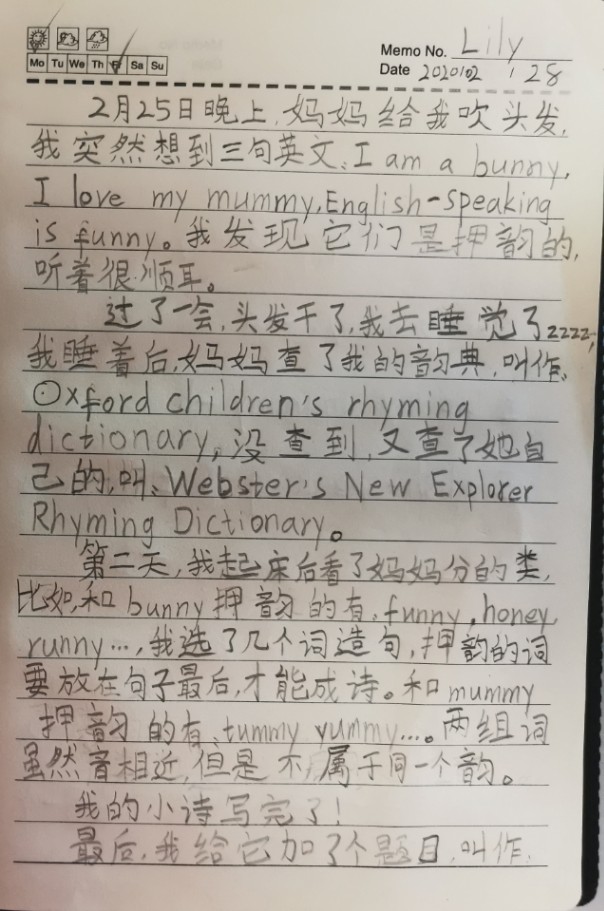 Memo No. Lily
Mo Tu We Th Fr Sa Su
Date 2020/02/28
2月25日晚上,妈妈给我吹头发,
我突然想到三句英文、I am a bunny,
I love my mummy,English-speaking
is funny。我发现它们是押韵的,
听着很顺耳。
过了一会,头发干了,我去睡觉了zzzz,
我睡着后,妈妈查了我的韵典,叫作、
Oxford children's rhyming
dictionary,没查到,又查了她自
己的,叫、Webster's New Explorer
Rhyming Dictionary。
第二天,我起床后看了妈妈分的类,
比如,和bunny押韵的有、funny,honey,
runny…,我选了几个词造句,押韵的词
要放在句子最后,才能成诗。和mummy
押韵的有、tummy yummy…。两组词
虽然音相近,但是不属于同一个韵。
我的小诗写完了!
最后,我给它加了个题目,叫作、